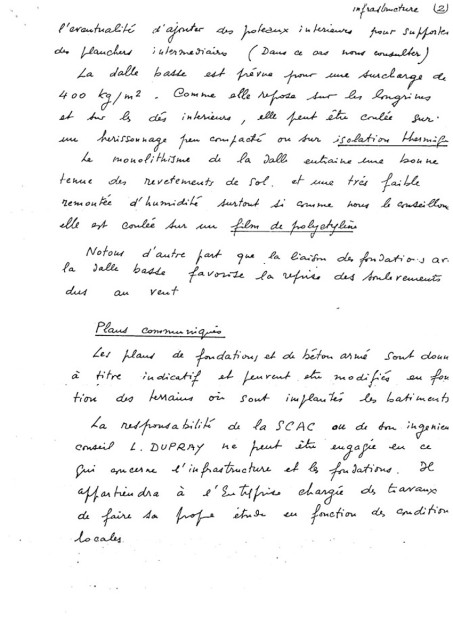 infrastructure (2)
l'eventualité d'ajouter des poteaux interieurs pour supporter
des planchers intermediaires (Dans ce cas nous consulter)
La dalle basse est prévue pour une surcharge de
400 kg/m2. Comme elle repose sur les longrines
et sur les dés interieurs, elle peut être coulée sur
un herissonnage peu compacté ou sur isolation thermiq
Le monolithisme de la dalle entraine une bonne
tenue des revetements de sol. et une très faible
remontée d'humidité surtout si comme nous le conseillon
elle est coulée sur un film de polyetylène
Notons d'autre part que la liaison des fondations av
la dalle basse favorise la reprise des soulevements
dus au vent
Plans communiqués
Les plans de fondations et de béton armé sont donn
à titre indicatif et peuvent etre modifiés en fon
tion des terrains où sont implantés les batiments
La responsabilité de la SCAC ou de son ingenieu
conseil L. DUPRAY ne peut être engagée en ce
qui concerne l'infrastructure et les fondations. Il
appartiendra à l'Entreprise chargée des travaux
de faire sa propre étude en fonction des condition
locales.